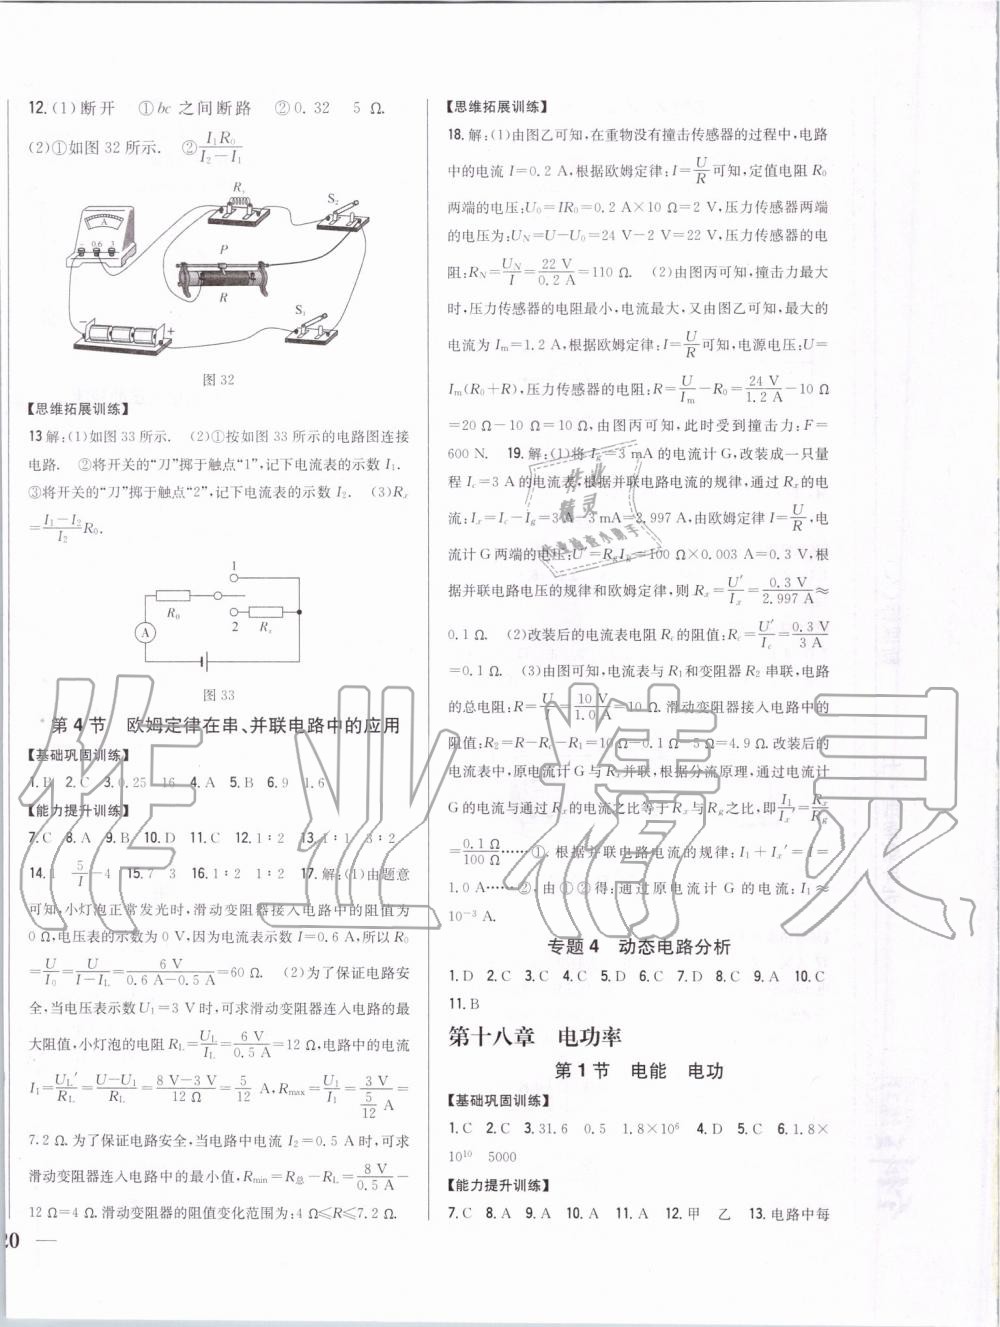 12.(1)断开 ①bc 之间断路 ②0.32 5 Ω.
(2)①如图 32 所示. ②I₁R₀/(I₂-I₁)
Rₓ
S₂
A
- 0.6 3
P
R
S₁
- +
图 32
【思维拓展训练】
13 解:(1)如图 33 所示. (2)①按如图 33 所示的电路图连接
电路. ②将开关的“刀”掷于触点“1”,记下电流表的示数 I₁.
③将开关的“刀”掷于触点“2”,记下电流表的示数 I₂. (3)Rₓ
=(I₁-I₂)/I₂ R₀.
1
R₀
2 Rₓ
A
图 33
第 4 节 欧姆定律在串、并联电路中的应用
【基础巩固训练】
1.B 2.C 3.0.25 16 4.A 5.B 6.9 1.6
【能力提升训练】
7.C 8.A 9.B 10.D 11.C 12.1:2 13.1:1 3:2
14.1 5/I-4 15.7 3 16.1:2 1:2 17.解:(1)由题意
可知,小灯泡正常发光时,滑动变阻器接入电路中的阻值为
0 Ω,电压表的示数为 0 V,因为电流表示数 I=0.6 A,所以 R₀
=U/I₀=U/(I-I_L)=6 V/(0.6 A-0.5 A)=60 Ω. (2)为了保证电路安
全,当电压表示数 U₁=3 V 时,可求滑动变阻器连入电路的最
大阻值,小灯泡的电阻 R_L=U_L/I_L=6 V/0.5 A=12 Ω,电路中的电流
I₁=U_L′/R_L=(U-U₁)/R_L=(8 V-3 V)/12 Ω=5/12 A,Rmax=U₁/I₁=3 V/(5/12 A)=
7.2 Ω.为了保证电路安全,当电路中电流 I₂=0.5 A 时,可求
滑动变阻器连入电路中的最小值,Rmin=R总-R_L=8 V/0.5 A-
12 Ω=4 Ω.滑动变阻器的阻值变化范围为:4 Ω≤R≤7.2 Ω.
20 —
【思维拓展训练】
18.解:(1)由图乙可知,在重物没有撞击传感器的过程中,电路
中的电流 I=0.2 A,根据欧姆定律:I=U/R可知,定值电阻 R₀
两端的电压:U₀=IR₀=0.2 A×10 Ω=2 V,压力传感器两端
的电压为:U_N=U-U₀=24 V-2 V=22 V,压力传感器的电
阻:R_N=U_N/I=22 V/0.2 A=110 Ω. (2)由图丙可知,撞击力最大
时,压力传感器的电阻最小,电流最大,又由图乙可知,最大的
电流为 Iₘ=1.2 A,根据欧姆定律:I=U/R可知,电源电压:U=
Iₘ(R₀+R),压力传感器的电阻:R=U/Iₘ-R₀=24 V/1.2 A-10 Ω
=20 Ω-10 Ω=10 Ω,由图丙可知,此时受到撞击力:F=
600 N. 19.解:(1)将 I_g=3 mA 的电流计 G,改装成一只量
程 I_c=3 A 的电流表,根据并联电路电流的规律,通过 Rₓ 的电
流:Iₓ=I_c-I_g=3 A-3 mA=2.997 A,由欧姆定律 I=U/R,电
流计 G 两端的电压:U′=R_gI_g=100 Ω×0.003 A=0.3 V,根
据并联电路电压的规律和欧姆定律,则 Rₓ=U′/Iₓ=0.3 V/2.997 A≈
0.1 Ω. (2)改装后的电流表电阻 R_c 的阻值:R_c=U′/I_c=0.3 V/3 A
=0.1 Ω. (3)由图可知,电流表与 R₁ 和变阻器 R₂ 串联,电路
的总电阻:R=U/I=10 V/1.0 A=10 Ω.滑动变阻器接入电路中的
阻值:R₂=R-R_c-R₁=10 Ω-0.1 Ω-5 Ω=4.9 Ω.改装后的
电流表中,原电流计 G 与 Rₓ 并联,根据分流原理,通过电流计
G 的电流与通过 Rₓ 的电流之比等于 Rₓ 与 R_g 之比,即I₁/Iₓ′=Rₓ/R_g
=0.1 Ω/100 Ω……①,根据并联电路电流的规律:I₁+Iₓ′=I=
1.0 A……②,由①②得:通过原电流计 G 的电流:I₁≈
10⁻³ A.
专题 4 动态电路分析
1.D 2.C 3.C 4.C 5.D 6.C 7.D 8.C 9.A 10.C
11.B
第十八章 电功率
第 1 节 电能 电功
【基础巩固训练】
1.C 2.C 3.31.6 0.5 1.8×10⁶ 4.D 5.C 6.1.8×
10¹⁰ 5000
【能力提升训练】
7.C 8.A 9.A 10.A 11.A 12.甲 乙 13.电路中每
作业精灵
作业
精灵
作业检查小助手